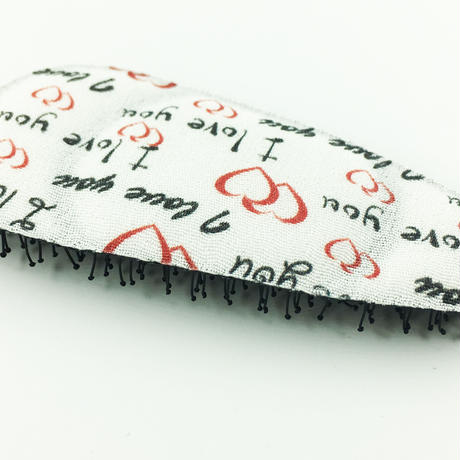 I love
I love you
I love you
you
I love you
I love you
you
I love you
I love you
love you
I lo
love you
you